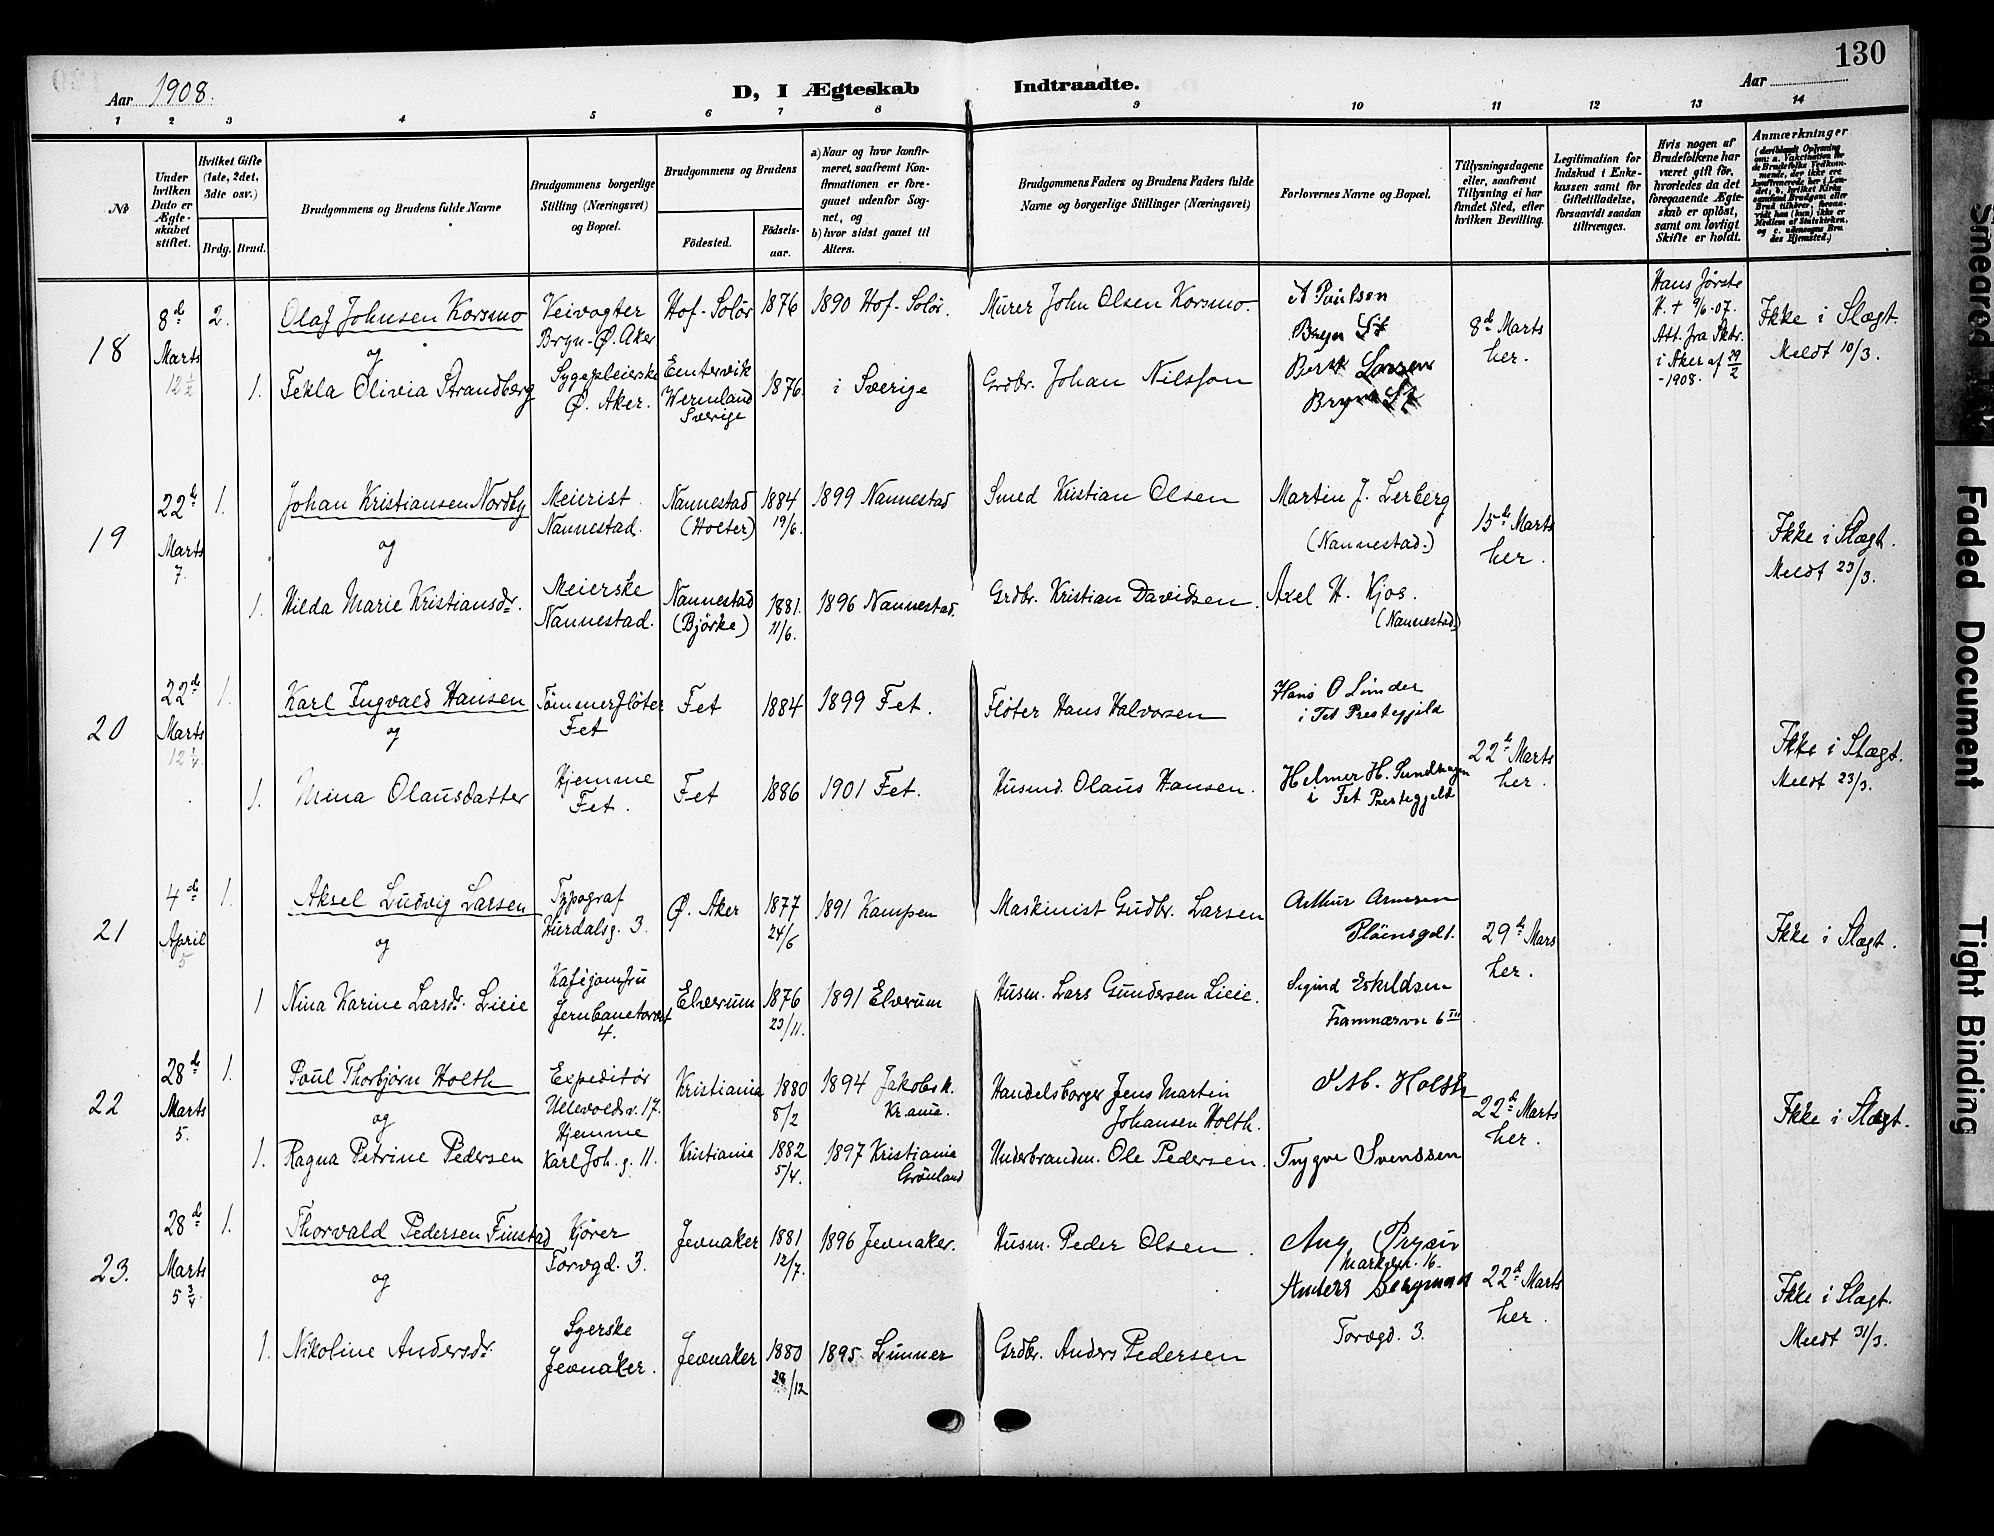 130
Aar 1908.
D, I Ægteskab Indtraadte.
Aar
1 2 3 4 5 6 7 8 9 10 11 12 13 14
№
Under hvilken Dato er Ægteskabet stiftet.
Hvilket Gifte (1ste, 2det, 3die osv.)
Brdg. Brud.
Brudgommens og Brudens fulde Navne
Brudgommens borgerlige Stilling (Næringsvei) og Bopæl.
Brudgommens og Brudens
Fødested.
Fødselsaar.
a) Naar og hvor konfirmeret, saafremt Konfirmationen er foregaaet udenfor Sognet, og
b) hvor sidst gaaet til Alters.
Brudgommens Faders og Brudens Faders fulde Navne og borgerlige Stillinger (Næringsvei)
Forlovernes Navne og Bopæl.
Tillysningsdagene eller, saafremt Tillysning ei har fundet Sted, efter hvilken Bevilling.
Legitimation for Indskud i Enkekassen samt for Giftetilladelse, forsaavidt saadan tiltrænges.
Hvis nogen af Brudefolkene har været gift før, hvorledes da det foregaaende Ægteskab er opløst, samt om lovligt Skifte er holdt.
Anmærkninger
(deriblandt Oplysning om: a. Vakcination for de Brudefolks Vedkommende, der ikke ere konfirmerede her i Landet; b. hvilket Kirkesamfund Brudgom eller Brud tilhører, forsaavidt han (hun) ikke er Medlem af Statskirken, og c. udensogns Brudes Hjemsted.)
18
8de Marts 12 ½
2.
Olaf Johnsen Korsmo
og
Veivogter
Bryn - Ø. Aker
Hof - Solør
1876
1890 Hof - Solør.
Murer John Olsen Korsmo.
A Paulsen
Bryn St
8de Marts her.
Hans første
H. † 9/6 - 07.
Att. fra Sktr.
i Aker af 29/2
- 1908.
Ikke i Slægt.
Meldt 10/3.
1.
Tekla Olivia Strandberg
Sygepleierske
Ø. Aker.
Emtervik
Wermland
Sverige
1876.
i Sverige
Grdbr. Johan Nilsson
Bernt Larsen
Bryn St
19
22de Marts 7.
1.
Johan Kristiansen Nordby
og
Meierist
Nannestad.
Nannestad
(Holter)
1884
19/6.
1899 Nannestad
Smed Kristian Olsen
Martin J. Lerberg
(Nannestad.)
15de Marts her.
Ikke i Slægt.
Meldt 23/3.
1.
Hilda Marie Kristiansdr.
Meierske
Nannestad.
Nannestad
(Bjørke)
1881.
11/6.
1896 Nannestad.
Grdbr. Kristian Davidsen.
Axel H. Kjos.
(Nannestad.)
20
22de Marts 12 ¼
1.
Karl Ingvald Hansen
og
Tømmerfløter
Fet
Fet
1884
1899 Fet.
Fløter Hans Halvorsen
Hans O Linder
i Fet Prestegjeld
22de Marts her.
Ikke i Slægt.
Meldt 23/3.
1.
Mina Olausdatter
Hjemme
Fet.
Fet
1886
1901 Fet.
Husmd. Olaus Hansen.
Helmer H. Sundhagen
i Fet Prestegjeld
21
4de April 5
1.
Aksel Ludvig Larsen
og
Typograf
Hurdalsg. 3.
Ø. Aker
1877
24/6
1891 Kampen
Maskinist Gudbr. Larsen
Arthur Arnesen
Pløensgd 1.
29de Mars her.
Ikke i Slægt.
1
Nina Karine Larsdr. Lieie
Kaféjomfru
Jernbanetorvet
4.
Elverum
1876
23/11.
1891 Elverum
Husm. Lars Gundersen Lieie.
Sigurd Eskildsen
Framnæsvn 6 III
22
28de Marts 5.
1.
Paul Thorbjørn Holth
og
Expeditør
Ullevoldsv. 17.
Kristiania
1880
5/2
1894 Jakobs K.
Kr.ania.
Handelsborger Jens Martin
Johansen Holth.
J. M. Holth
22de Marts her.
Ikke i Slægt.
1.
Ragna Petrine Pedersen
Hjemme
Karl Joh. g. 11.
Kristiania
1882
5/4.
1897 Kristiania
Grønland
Underbrandm. Ole Pedersen.
Trygve Svendsen
23.
28de Marts 5 ¾
1.
Thorvald Pedersen Finstad
og
Kjører
Torvgd. 3.
Jevnaker
1881
12/7.
1896 Jevnaker.
Husm. Peder Olsen.
Aug
Markvn. 16.
22de Marts her.
Ikke i Slægt.
Meldt 31/3.
1.
Nikoline Andersdr.
Syerske
Jevnaker.
Jevnaker
1880
28/12
1895 Lunner
Grdbr. Anders Pedersen
Anders Bergmann
Torvgd. 3.
Smeared Ink
Faded Document
Tight Binding